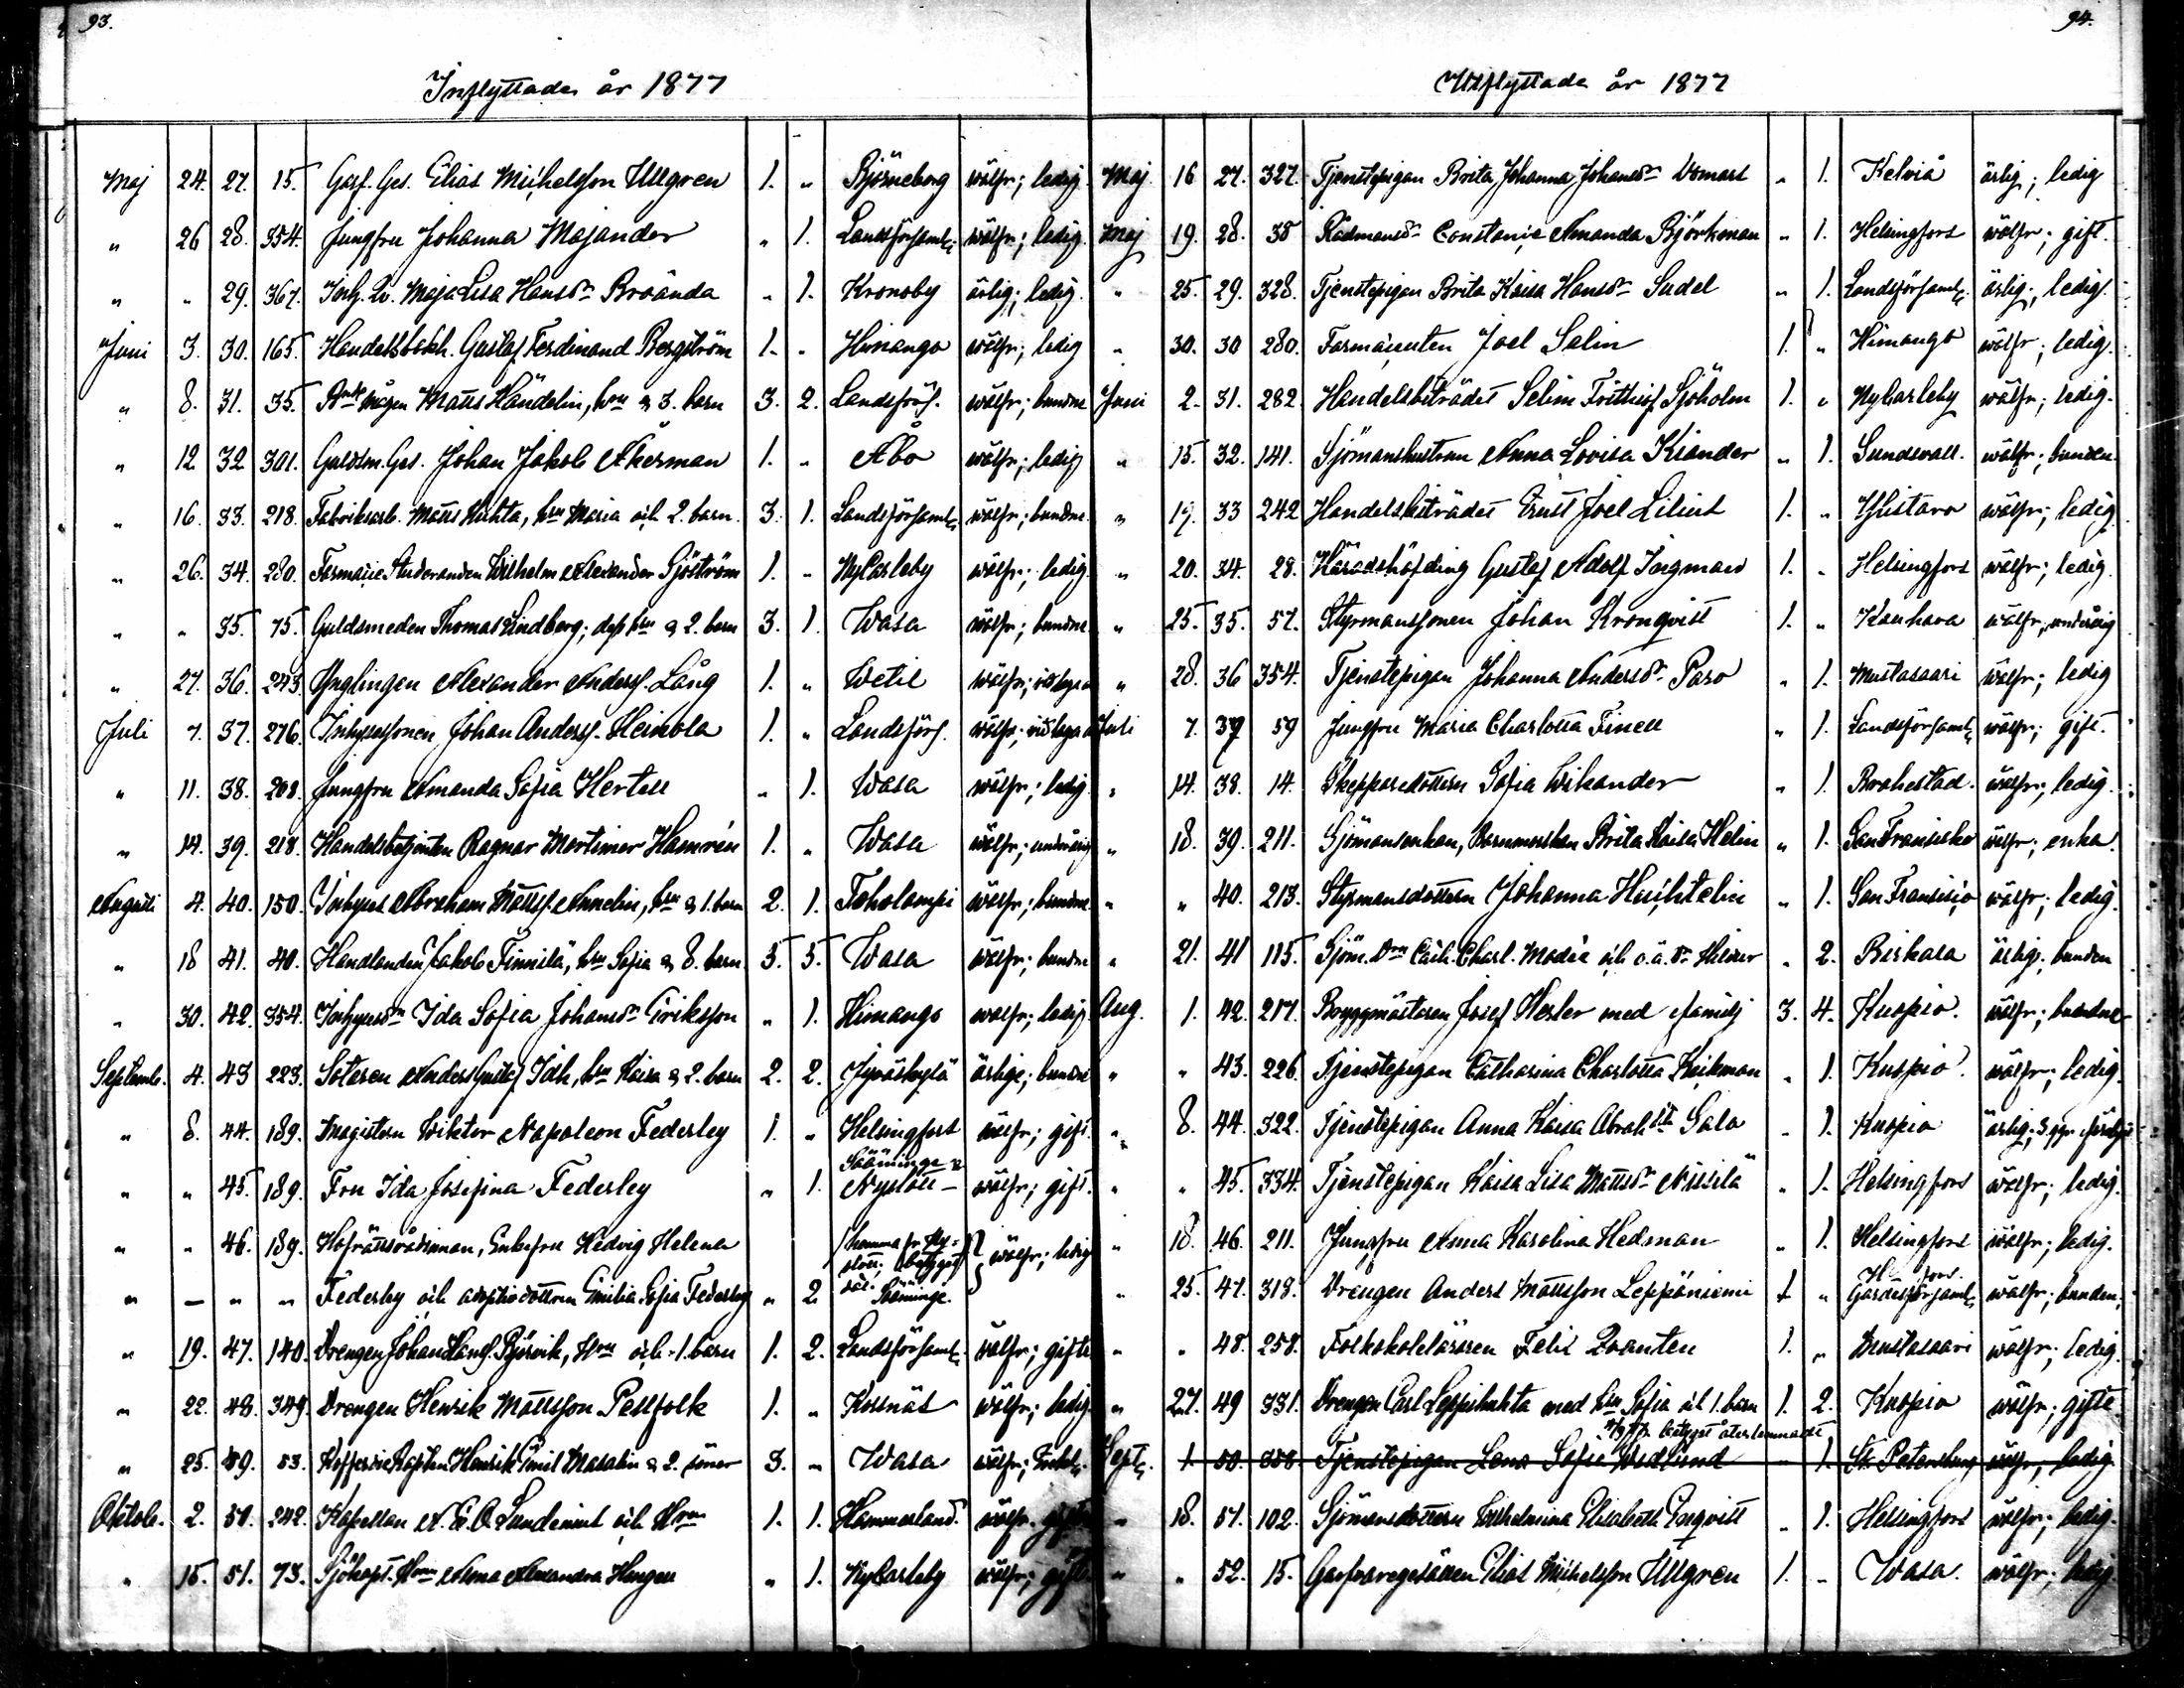 93.
Inflyttade år 1877
Maj 24. 27. 15. Garf. Ges. Elias Michelsson Ullgren 1. " Björneborg wälfr; ledig
" 26 28. 354. Jungfru Johanna Majander " 1. Landsförsaml. wälfr; ledig.
" " 29. 367. Maja Lisa Hansdr " 1. Kronoby ärlig; ledig.
Juni 3. 30. 165. Gustaf Ferdinand Bergström 1. " Himango wälfr; ledig
" 8. 31. 35. Matts Händelin, hru & 3. barn 3. 2. Landsförs. wälfr; bundne
" 12 32 301. Guldsm. Ges. Johan Jakob Åkerman 1. " Åbo wälfr; ledig
" 16. 33. 218. Fabriksarb. Matts Huhta, hru Maria och 2. barn. 3. 1. Landsförsaml. wälfr; bundne.
" 26. 34. 280. Farmacie Studeranden Wilhelm Alexander Sjöström 1. " NyCarleby wälfr; ledig
" " 35. 75. Guldsmeden Thomas Lindberg; dess hru & 2. barn 3. 1. Wasa wälfr; bundne
" 27. 36. 243. Ynglingen Alexander Anderss. Lång 1. " Wetil wälfr;
Juli 7. 37. 276. Inhysessonen Johan Anderss. Heinola 1. " Landsförs. wälfr;
" 11. 38. 208. Jungfru Amanda Sofia Hertell " 1. Wasa wälfr; ledig.
" 14. 39. 218. Handelsbetjenten Ragnar Mortimer Hamrén 1. " Wasa wälfr; underårig
Augusti 4. 40. 150. Inhyses Abraham Mattss. Annelin, hru & 1. barn 2. 1. Toholampi wälfr; bundne
" 18 41. 40. Handlanden Jakob Finnilä, hru Sofia & 8. barn. 5. 5. Wasa wälfr; bundne
" 30. 42. 354. Ida Sofia Johansdr Eriksson " 1. Himango wälfr; ledig
Septemb. 4. 43 223. Sotaren Anders Gustaf Idh, hru Kaisa & 2. barn 2. 2. Jyväskylä ärlige; bundne
" 8. 44. 189. Magistern Wiktor Napoleon Federley 1. " Helsingfors wälfr; gift.
" " 45. 189. Fru Ida Josefina Federley " 1. Sääminge Nyslott wälfr; gift.
" " 46. 189. Hofrättsrådinnan, Enkefru Hedvig Helena wälfr; ledig
" — " " Federley och adoptivdottren Emilia Sofia Federley " 2. Sääminge.
" 19. 47. 140. Drengen Johan Hanss. Björvik, Hru och 1. barn 1. 2. Landsförsaml. wälfr; gifte
" 22. 48. 349. Drengen Henrik Mattsson Pellfolk 1. " Korsnäs wälfr; ledig.
" 25. 49. 53. Kofferdie Kapten Henrik Emil Masalin & 2. söner 3. " Wasa wälfr;
Oktob. 2. 50. 242. Kapellan A. E. O. Sundqvist och Hru 1. 1. Hammarland. wälfr. gifte
" 15. 51. 73. Sjökapt. Hru Alma Alexandra " 1. NyCarleby wälfr; gift
94.
Utflyttade år 1877
Maj. 16 27. 327. Tjenstepigan Brita Johanna Johansdr " 1. Kelviå ärlig; ledig
Maj 19. 28. 35 Rådmansdr Constance Amanda Björkman " 1. Helsingfors wälfr; gift.
" 25. 29. 328. Tjenstepigan Brita Kaisa Hansdr Sudel " 1. Landsförsaml. ärlig; ledig.
" 30. 30 280. Farmaceuten Joel Salin 1. " Himango wälfr; ledig.
Juni 2. 31. 282. Handelsbiträdet Selim Frithiof Sjöholm 1. " NyCarleby wälfr; ledig.
" 15. 32. 141. Sjömanshustrun Anna Lovisa Kiander " 1. Sundsvall. wälfr; bunden.
" 19. 33 242 Handelsbiträdet Ernst Joel Lilius 1. " Ylistaro wälfr; ledig
" 20. 34. 28. Häradshöfding Gustaf Adolf Ingman 1. " Helsingfors wälfr; ledig.
" 25. 35. 57. Styrmanssonen Johan Kronqvist 1. " Kauhava wälfr; underårig
" 28. 36 354. Tjenstepigan Johanna Andersdr Paso " 1. Mustasaari wälfr; ledig
Juli 7. 37 59 Jungfru Maria Charlotta Finell " 1. Landsförsaml. wälfr; gift.
" 14. 38. 14. Skepparedottern Sofia Wikander " 1. Brahestad. wälfr; ledig.
" 18. 39. 211. Sjömansenkan, Barnmorskan Brita Kaisa Helin " 1. San Fransisko wälfr; enka.
" " 40. 213. Styrmansdottern Johanna Huchtelin " 1. San Fransisco wälfr; ledig.
" 21. 41 115. Sjöm. Charl. Modée " 2. Birkala ärlig; bunden
Aug. 1. 42. 217. Bryggmästaren Josef Kesler med familj 3. 4. Kuopio. wälfr; bundne
" " 43. 226. Tjenstepigan Catharina Charlotta Krikman " 1. Kuopio. wälfr; ledig.
" 8. 44. 322. Tjenstepigan Anna Kaisa Abrahdr Salo " 1. Kuopio ärlig;
" " 45. 334. Tjenstepigan Kaisa Lisa Mattsdr Nissilä " 1. Helsingfors wälfr; ledig.
" 18. 46. 211. Jungfru Anna Karolina Hedman " 1. Helsingfors wälfr; ledig.
" 25. 47. 318. Drengen Anders Mattsson Leppäniemi 1 " H:fors Gardesförsaml. wälfr; bunden.
" " 48. 258. Folkskoleläraren Felix Qvanten 1. " Mustasaari wälfr; ledig.
" 27. 49 331. Drengen Carl Leppihuhta med hru Sofia och 1. barn 1. 2. Kuopio wälfr; gifte
betyget återlemnadt
Sept. 1 50. 358 Tjenstepigan Lena Sofia Wedlund " 1. St. Petersburg wälfr; ledig.
" 18. 51. 102. Sjömansdottern Wilhelmina Elisabeth Enqvist " 1. Helsingfors wälfr; ledig.
" " 52. 15. Garfvaregesällen Elias Michelsson Ullgren 1. " Wasa. wälfr; ledig.